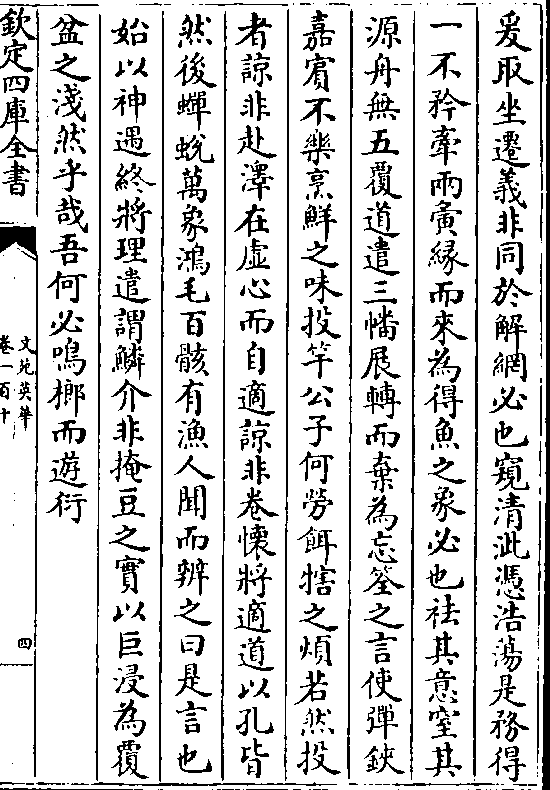 爰取坐遷義非同於解網必也窺清泚憑浩蕩是務得
一不矜牽兩夤緣而來為得魚之象必也袪其意窒其
源舟無五覆道遣三幡展轉而棄為忘筌之言使彈鋏
嘉賓不樂烹鮮之味投竿公子何勞餌犗之煩若然投
者諒非赴澤在虛心而自適諒非卷懷將適道以孔皆
然後蟬蛻萬象鴻毛百骸有漁人聞而辨之曰是言也
始以神遇終將理遣謂鱗介非掩豆之實以巨浸為覆
盆之淺然乎哉吾何必鳴榔而遊衍
欽定四庫全書
文苑英華
卷一百十
四